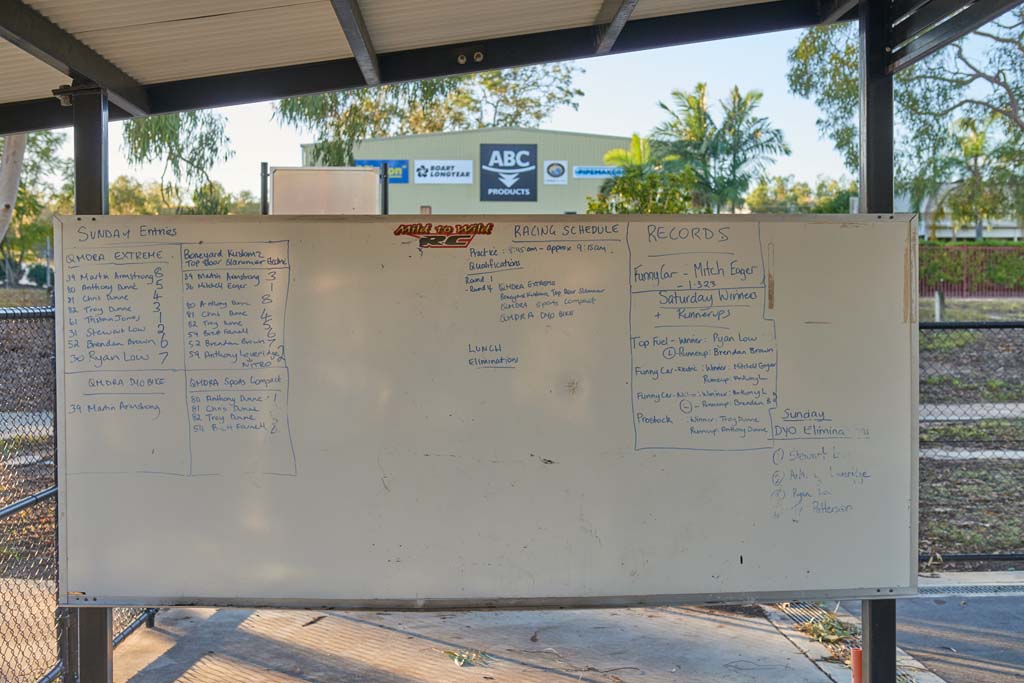 BOART
LONGYEAR
ABC
PRODUCTS
PIPEMAKERS
SUNDAY Entries
QMDRA EXTREME
39 Martin Armstrong 8
80 Anthony Dunne 5
81 Chris Dunne 4
82 Troy Dunne 3
61 Tristan Jones 1
31 Stewart Low 2
52 Brendan Brown 6
30 Ryan Low 7
Boneyard Kustomz
Top Door Slammer Electric
39 Martin Armstrong 3
36 Mitchell Eager 1
80 Anthony Dunne 8
81 Chris Dunne 4
82 Troy Dunne 5
54 Brett Farnell 6
52 Brendan Brown 7
59 Anthony Loveridge 2
NITRO
QMDRA DYO BIKE
39 Martin Armstrong
QMDRA Sports Compact
80 Anthony Dunne 1
81 Chris Dunne
82 Troy Dunne
54 Brett Farnell 2
Mild to Wild
RC
RACING SCHEDULE
Practice - 8:45am - approx 9:15am
Qualifications
Round 1
- Round 4
QMDRA EXTREME
Boneyard Kustomz Top Door Slammer
QMDRA Sports Compact
QMDRA DYO BIKE
LUNCH
Eliminations
RECORDS
Funny Car - Mitch Eager
- 1.323
Saturday Winners
+ Runnerups
Top Fuel - Winner: Ryan Low
- Runnerup: Brendan Brown
Funny Car - Electric: Winner: Mitchell Eager
Runnerup: Anthony L
Funny Car - Nitro: Winner: Anthony L
- Runnerup: Brendan B
Prostock Winner: Troy Dunne
Runnerup: Anthony Dunne
Sunday
DYO Elimina
(1) Stewart L
(2) Loveridge
(3) Ryan Lo
Patterson